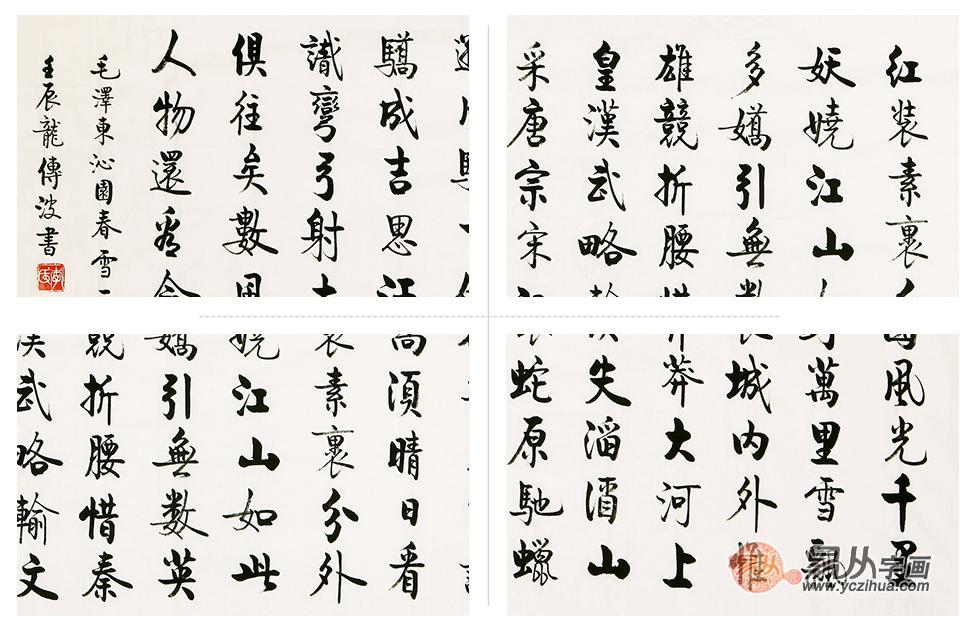 驕成吉思
識彎弓射大
俱往矣數
人物還看今
毛澤東沁園春雪一
壬辰龍傳波書
紅裝素裹
妖嬈江山
多嬌引無數
雄競折腰惜
皇漢武略
采唐宗宋
高須晴日看
裝素裹分外
嬈江山如此
嬌引無數英
競折腰惜秦
漢武略輸文
國風光千里
萬里雪飄
長城內外惟
莽大河上
失滔滔山
蛇原馳蠟
易从字画
www.yczihua.com